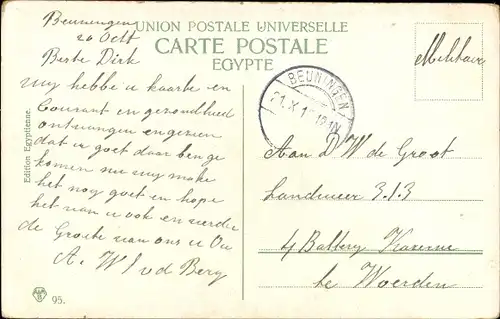 UNION POSTALE UNIVERSELLE
CARTE POSTALE
EGYPTE
Beuningen
20 Oct
Beste Dirk
Wy hebbe u kaarte en
Courant en gezondheid
ontvangen en gezien
dat u goet daar ben ge
komen nu wy make
het nog goet en hope
het van u ook en verder
de Groete van ons u Oo
A. W v d Berg
Militair
BEUNINGEN
Aan D W de Groot
Landweer 3.1.3
4 Battery Kaserne
te Woerden
Edition Egyptienne.
95.